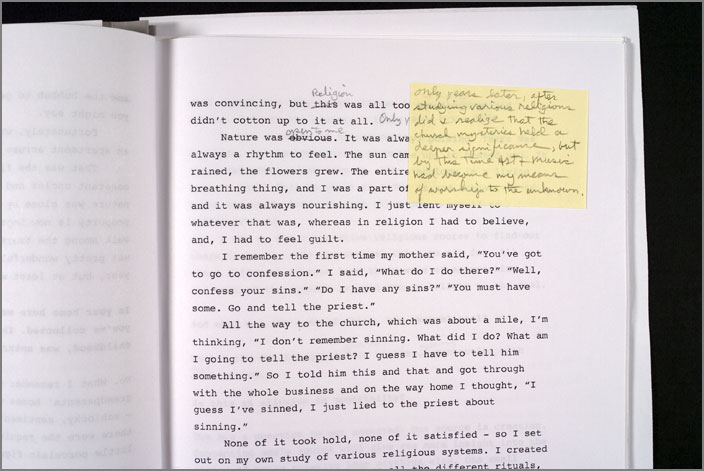 Religion
was convincing, but this was all too
didn't cotton up to it at all. Only
open to me
Nature was obvious. It was alwa
always a rhythm to feel. The sun cam
rained, the flowers grew. The entire
breathing thing, and I was a part of
and it was always nourishing. I just lent myself to
whatever that was, whereas in religion I had to believe,
and, I had to feel guilt.
I remember the first time my mother said, “You've got
to go to confession.” I said, “What do I do there?” “Well,
confess your sins.” “Do I have any sins?” “You must have
some. Go and tell the priest.”
All the way to the church, which was about a mile, I'm
thinking, “I don't remember sinning. What did I do? What am
I going to tell the priest? I guess I have to tell him
something.” So I told him this and that and got through
with the whole business and on the way home I thought, “I
guess I've sinned, I just lied to the priest about
sinning.”
None of it took hold, none of it satisfied – so I set
out on my own study of various religious systems. I created
all the different rituals,
only years later, after
studying various religions
did I realize that the
church mysteries held a
deeper significance, but
by this time Art & Music
had become my means
of worship to the unknown.